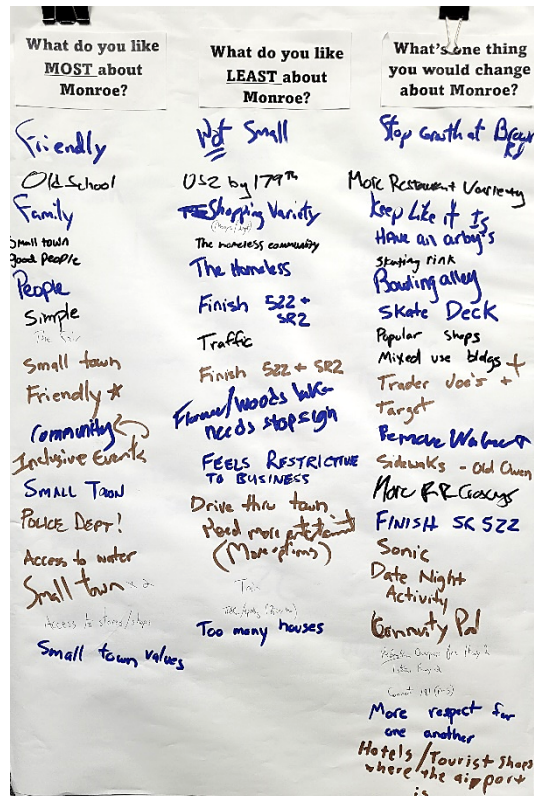 What do you like
MOST about
Monroe?
Friendly
Old School
Family
Small town
good people
People
Simple
Small town
Friendly
Community
Inclusive Events
SMALL TOWN
POLICE DEPT!
Access to water
Small town x 2
Access to stores/shops
Small town values
What do you like
LEAST about
Monroe?
Not Small
US2 by 179th
Shopping Variety
The homeless community
The Homeless
Finish 522 +
SR2
Traffic
Finish 522 + SR2
Woods lake
needs stop sign
FEELS RESTRICTIVE
TO BUSINESS
Drive thru town
Need more
(More options)
Too many houses
What's one thing
you would change
about Monroe?
Stop Growth at Brown
Rd
More Restaurant Varriety
Keep Like it Is
HAVE an arby's
Skating rink
Bowling alley
SKATE DECK
Popular shops
Mixed use bldgs +
Trader Joe's +
Target
Remove Walmart
Sidewalks - Old Owen
More RR Crossings
FINISH SR 522
Sonic
Date Night
Activity
Community Pool
More respect for
one another
Hotels / Tourist Shops
where the airport
is